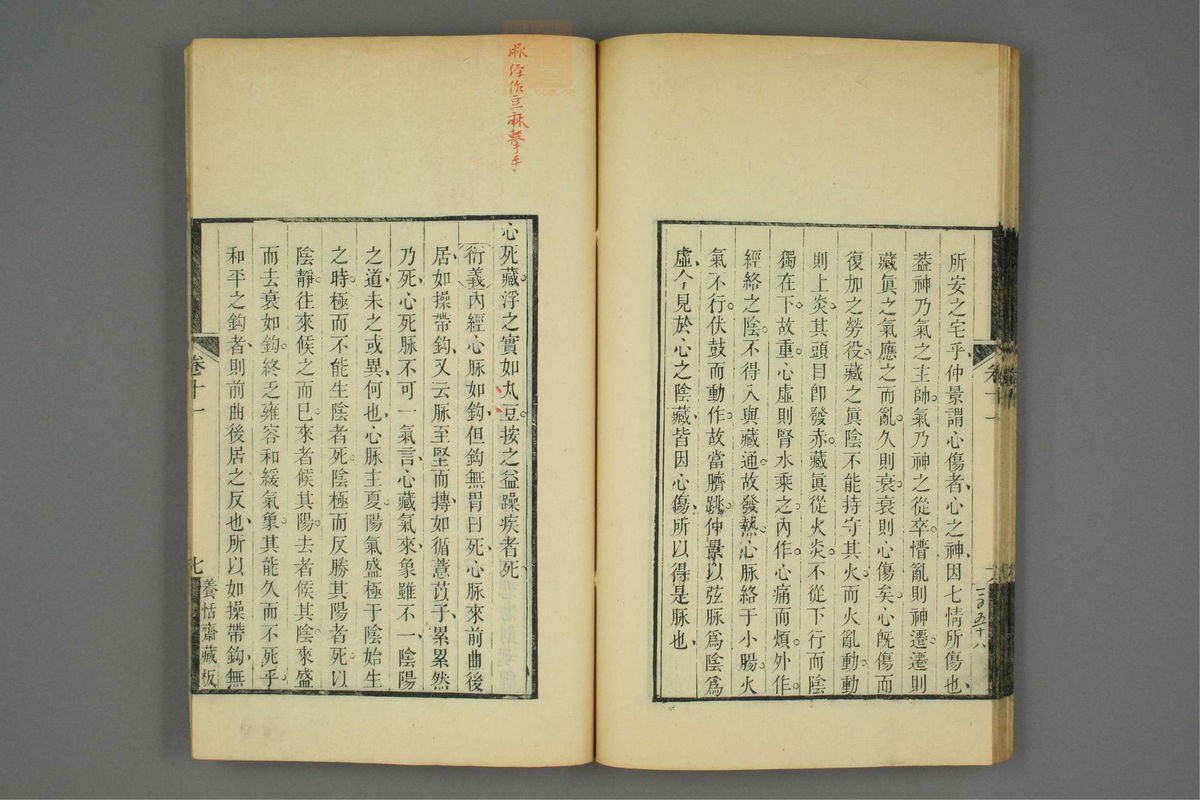 所安之宅乎仲景謂心傷者心之神因七情所傷也
葢神乃氣之主帥氣乃神之從卒懵亂則神遷遷則
藏眞之氣應之而亂久則衰衰則心傷矣心旣傷而
復加之勞役藏之眞陰不能持守其火而火亂動動
則上炎其頭目卽發赤藏眞從火炎不從下行而陰
獨在下故重心虛則腎水乘之內作心痛而煩外作
經絡之陰不得入與藏通故發熱心脈絡于小腸火
氣不行伏鼓而動作故當臍跳仲景以弦脈爲陰爲
虛今見於心之陰藏皆因心傷所以得是脈也
卷十一
三百五十八
脉經作豆麻擊手
心死藏浮之實如丸豆按之益躁疾者死
衍義內經心脈如鈎但鈎無胃曰死心脈來前曲後
居如操帶鈎又云脈至堅而摶如循薏苡子累累然
乃死心死脈不可一氣言心藏氣來象雖不一陰陽
之道未之或異何也心脈主夏陽氣盛極于陰始生
之時極而不能生陰者死陰極而反勝其陽者死以
陰靜往來候之而巳來者候其陽去者候其陰來盛
而去衰如鈎終乏雍容和緩氣象其能久而不死乎
和平之鈎者則前曲後居之反也所以如操帶鈎無
卷十一
七
養恬齋藏板